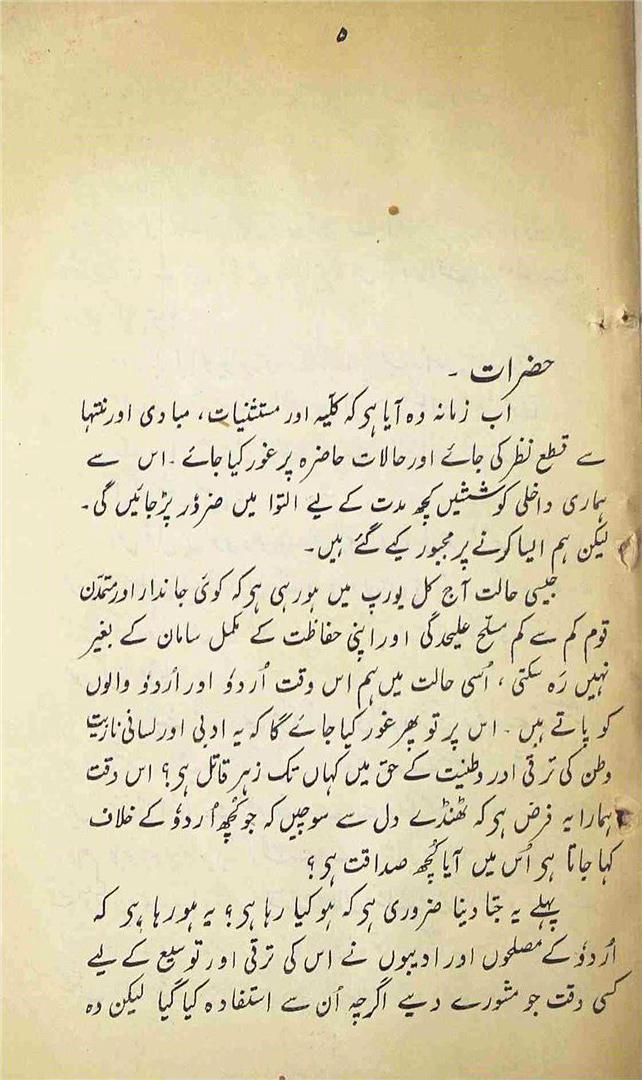 ۵
حضرات ۔
اب زمانہ وہ آیا ہی کہ کلّیہ اور مستثنیات، مبادی اور منتہا
سے قطع نظر کی جائے اور حالات حاضرہ پر غور کیا جائے ۔ اس سے
ہماری داخلی کوششیں کچھ مدت کے لیے التوا میں ضرور پڑ جائیں گی۔
لیکن ہم ایسا کرنے پر مجبور کیے گئے ہیں۔
جیسی حالت آج کل یورپ میں ہو رہی ہی کہ کوئی جاندار اور متمدّن
قوم کم سے کم مسلّح علیحدگی اور اپنی حفاظت کے مکمل سامان کے بغیر
نہیں رہ سکتی، اُسی حالت میں ہم اس وقت اُردؤ اور اُردؤ والوں
کو پاتے ہیں ۔ اس پر تو پھر غور کیا جائے گا کہ یہ ادبی اور لسانی نازیت
وطن کی ترقی اور وطنیت کے حق میں کہاں تک زہر قاتل ہی؟ اس وقت
ہمارا یہ فرض ہی کہ ٹھنڈے دل سے سوچیں کہ جو کُچھ اُردؤ کے خلاف
کہا جاتا ہی اُس میں آیا کُچھ صداقت ہی؟
پہلے یہ جتا دینا ضروری ہی کہ ہو کیا رہا ہی؟ یہ ہو رہا ہی کہ
اُردؤ کے مصلحوں اور ادیبوں نے اس کی ترقی اور توسیع کے لیے
کسی وقت جو مشورے دیے اگرچہ اُن سے استفادہ کیا گیا لیکن وہ